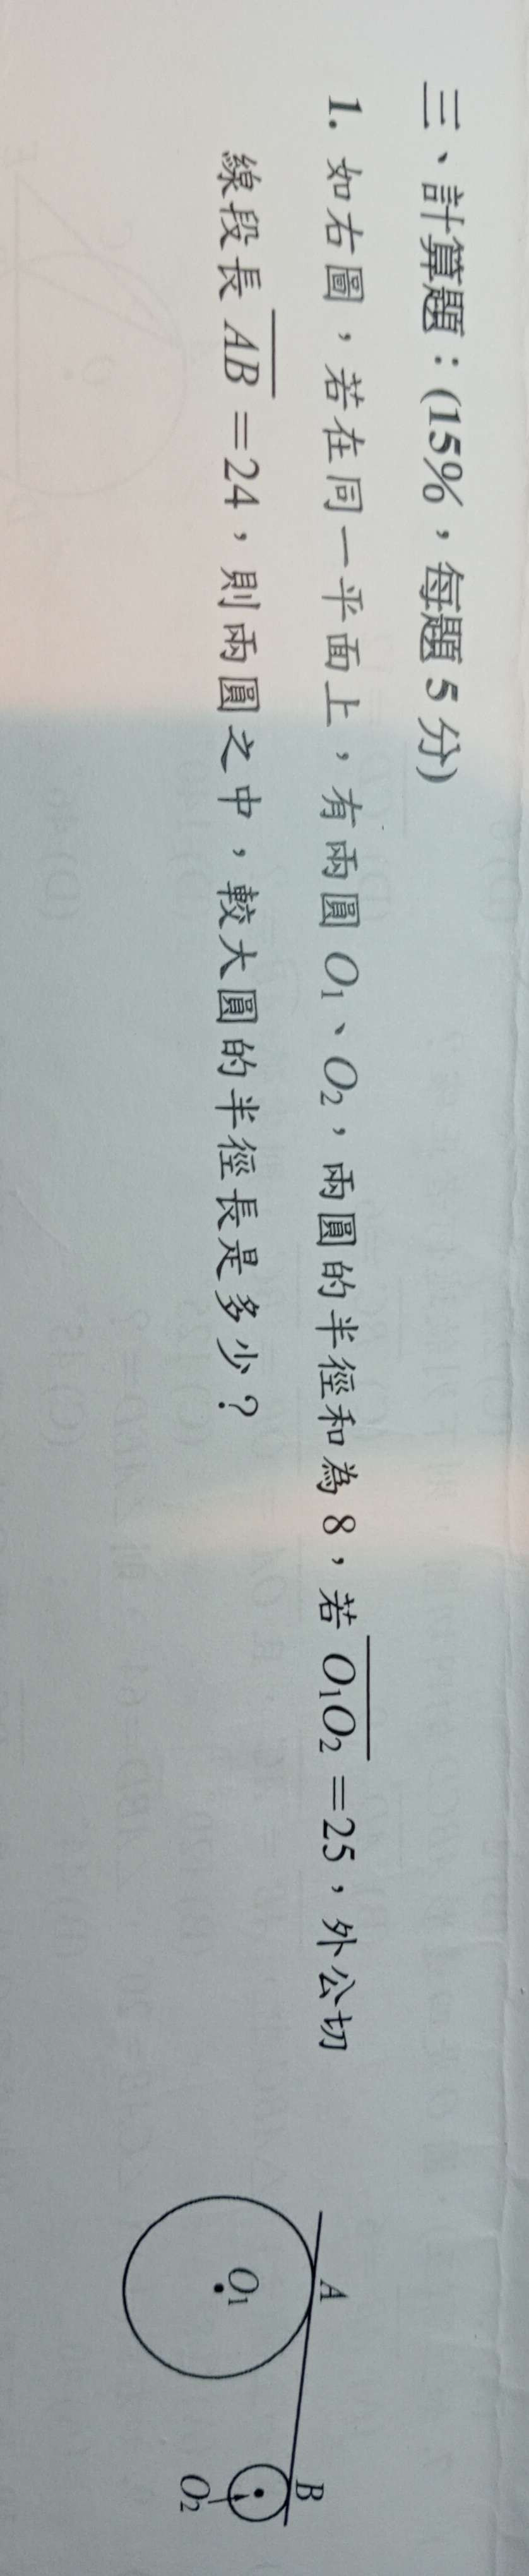 三、計算題：(15%，每題 5 分)
1. 如右圖，若在同一平面上，有兩圓 O₁、O₂，兩圓的半徑和為 8，若 O₁O₂ =25，外公切
線段長 AB =24，則兩圓之中，較大圓的半徑長是多少？
A
B
O₁
O₂